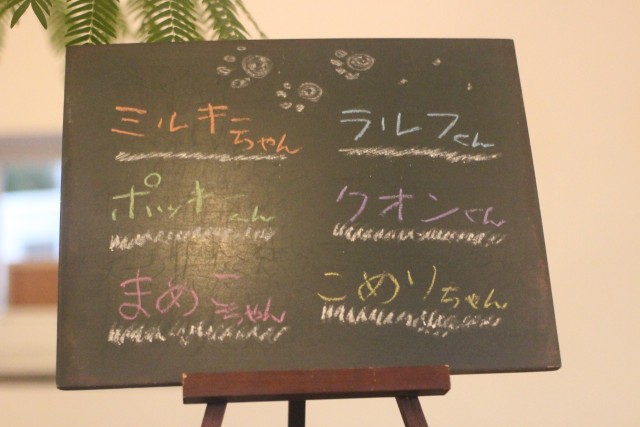 ミルキーちゃん
ラルフくん
ポッキーくん
クオンくん
まめこちゃん
こめりちゃん